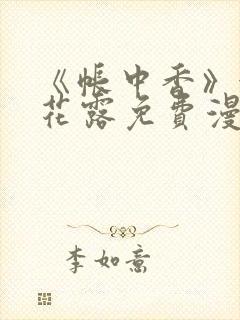 《帐中香》
花露免费漫
李如意